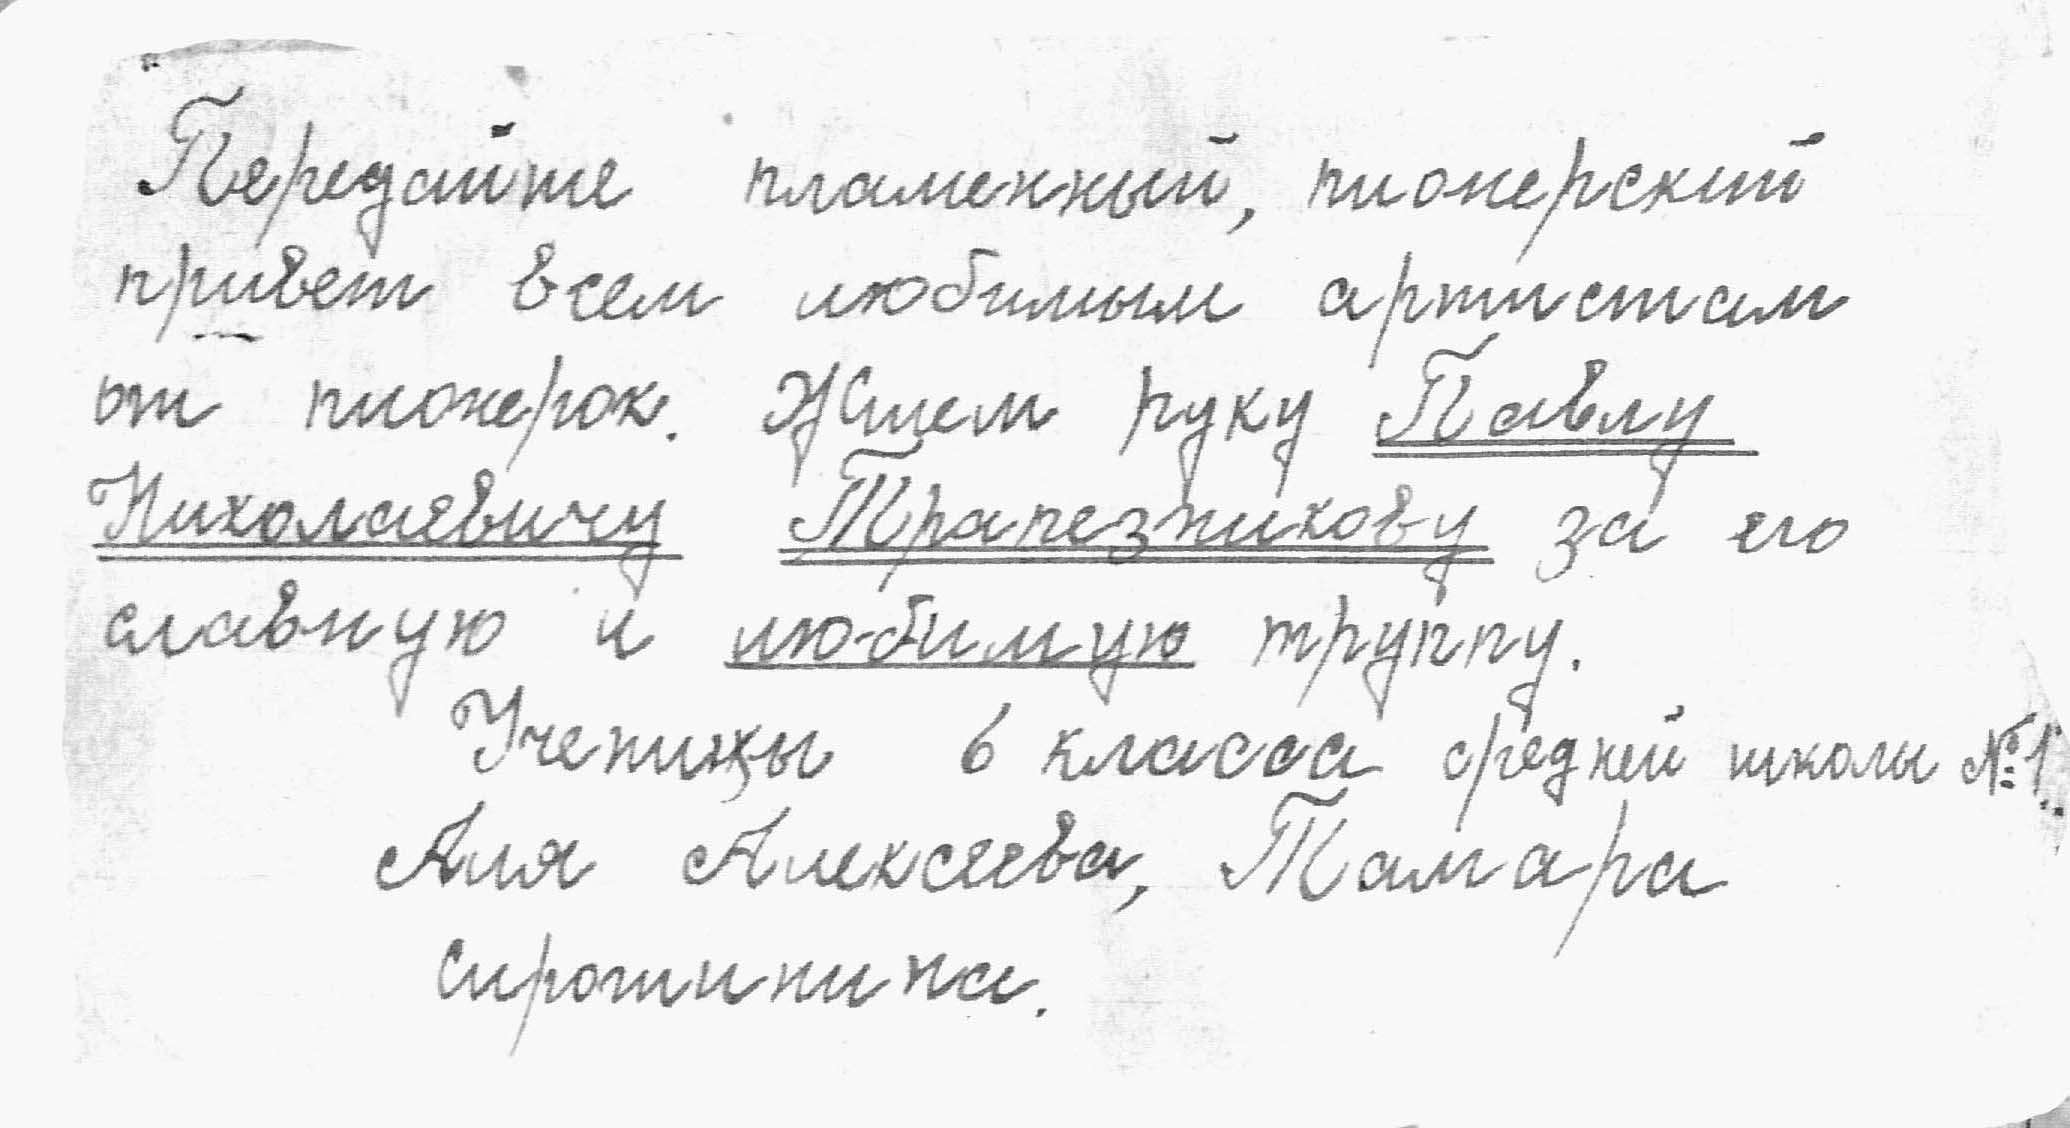 Передайте пламенный, пионерский
привет всем любимым артистам
от пионерок. Жмем руку Павлу
Николаевичу Трапезникову за его
славную и любимую труппу.
Ученицы 6 класса средней школы №1.
Аля Алексеева, Тамара
Сиротинина.